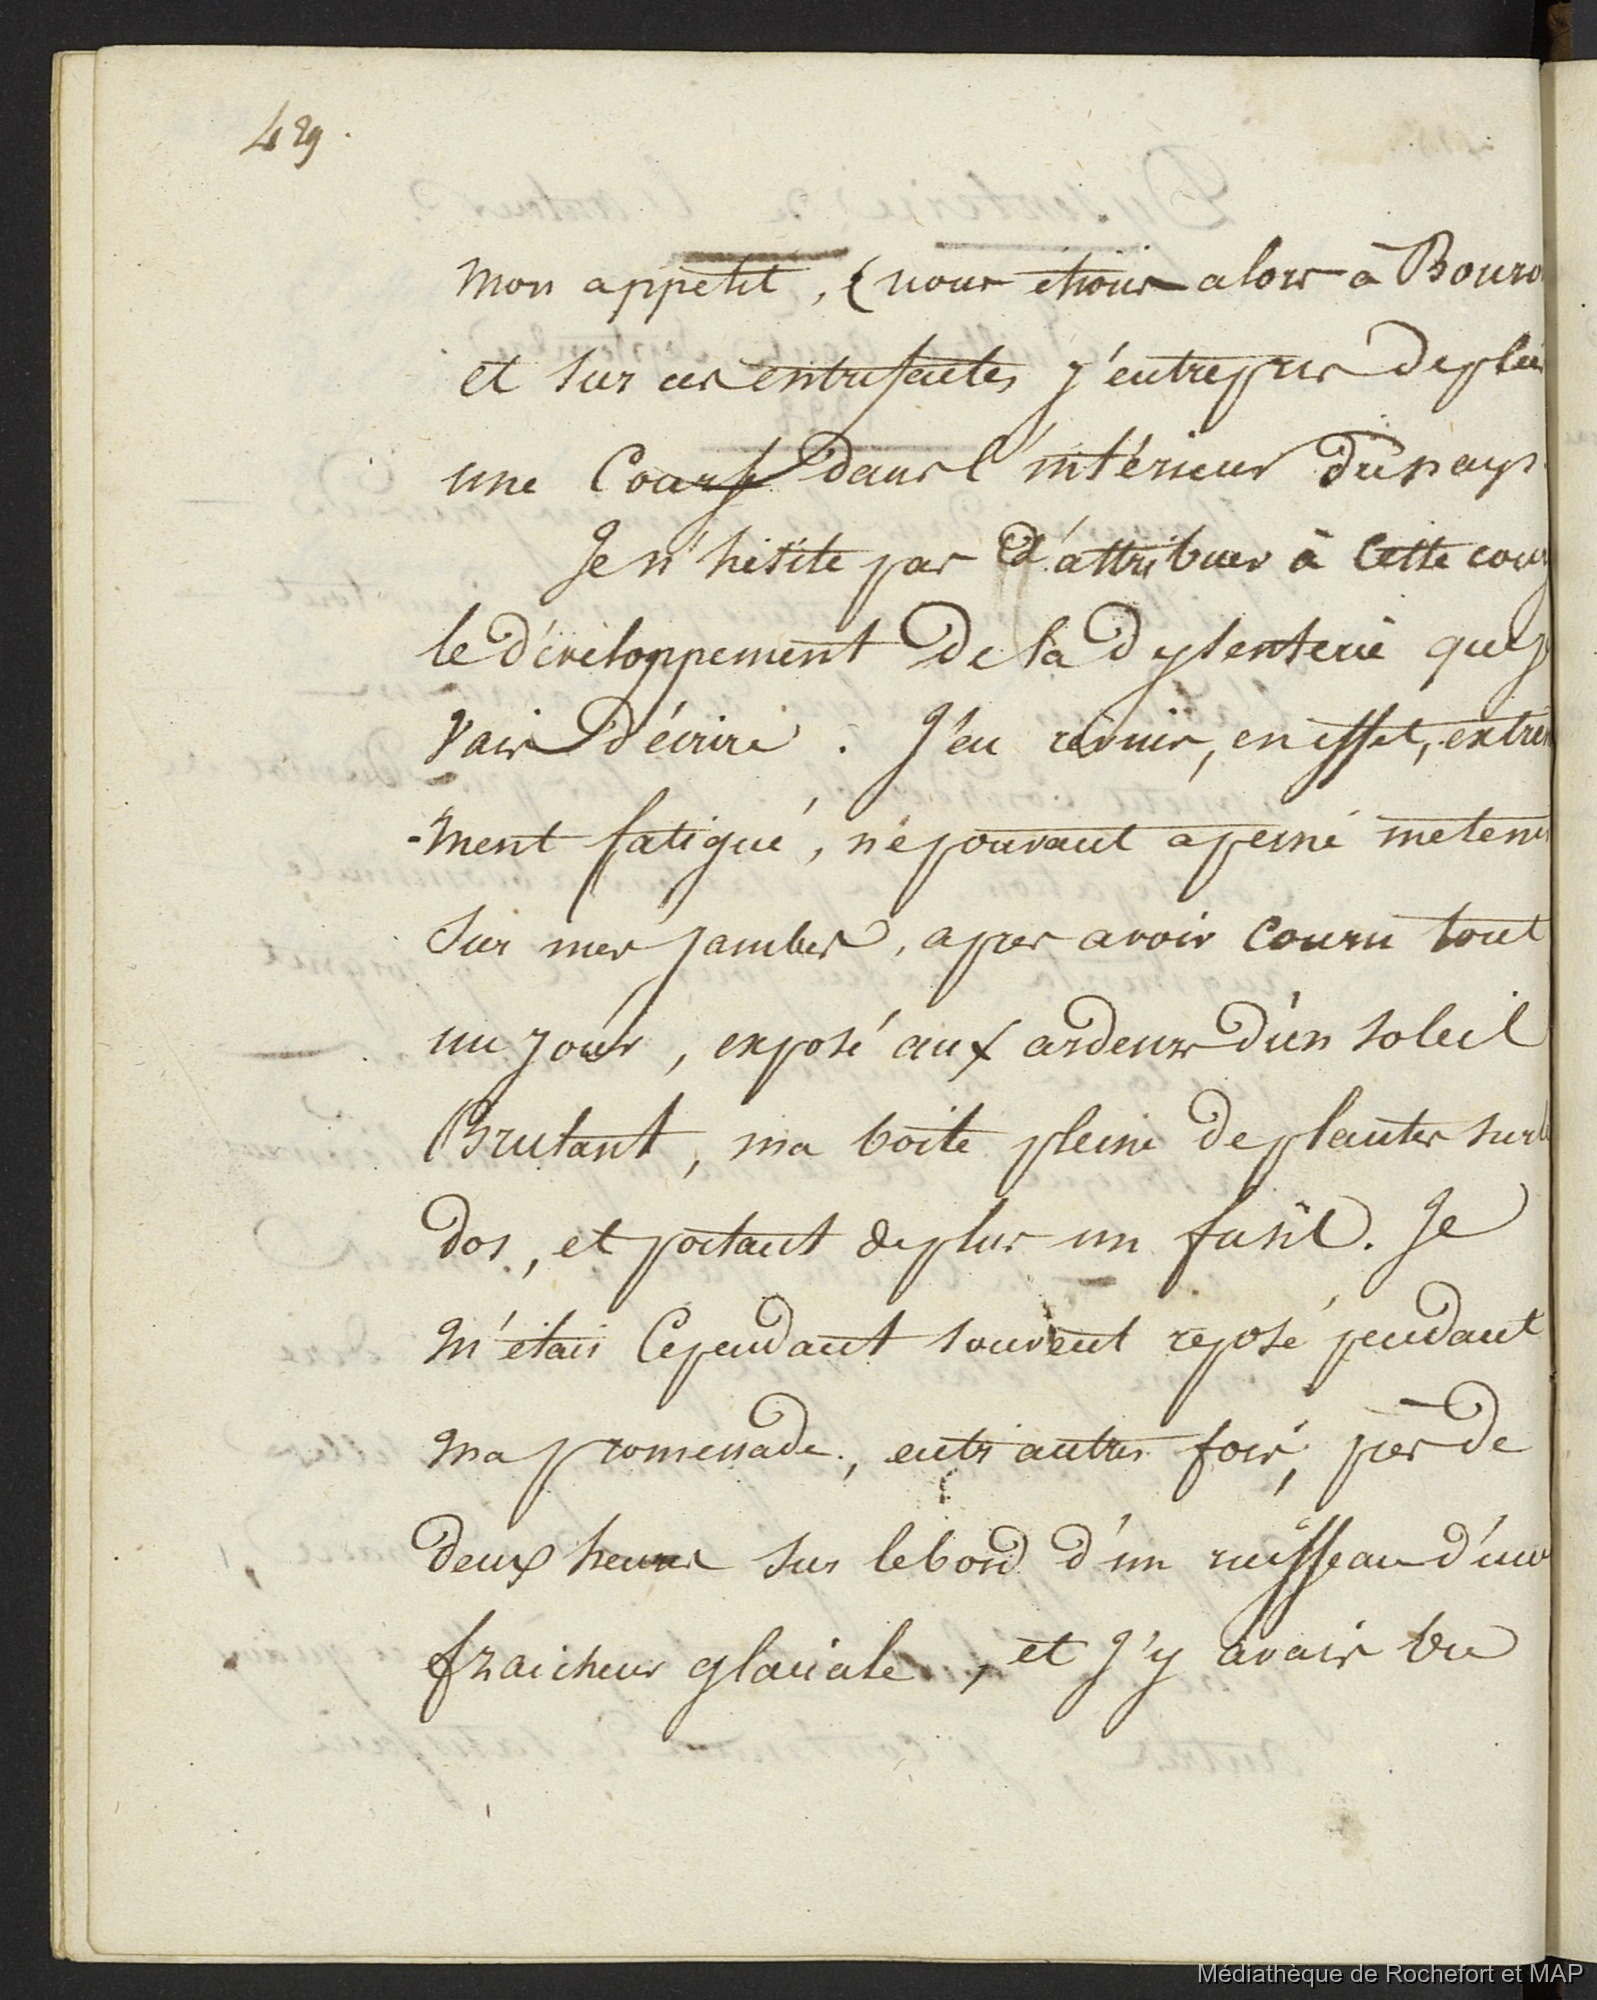 429.
mon appetit, (nous étions alors à Bouro
et sur ces entrefaites j'entrepris de plus
une Course dans l'intérieur du pays.
Je n'hésite pas d'attribuer à cette cour
le développement de la dysenterie que j
vais d'écrire. J'en revins, en effet, extrê
-ment fatigué, ne pouvant a peine me tenir
sur mes jambes, apres avoir couru tout
un jour, exposé aux ardeurs d'un soleil
Brulant, ma boite pleine de plantes sur
dos, et portant de plus un fusil. Je
m'étais Cependant souvent reposé pendant
ma promenade, entr'autres fois, près de
deux heures sur le bord d'un ruisseau d'une
fraicheur glaciale, et j'y avais bu
Médiathèque de Rochefort et MAP